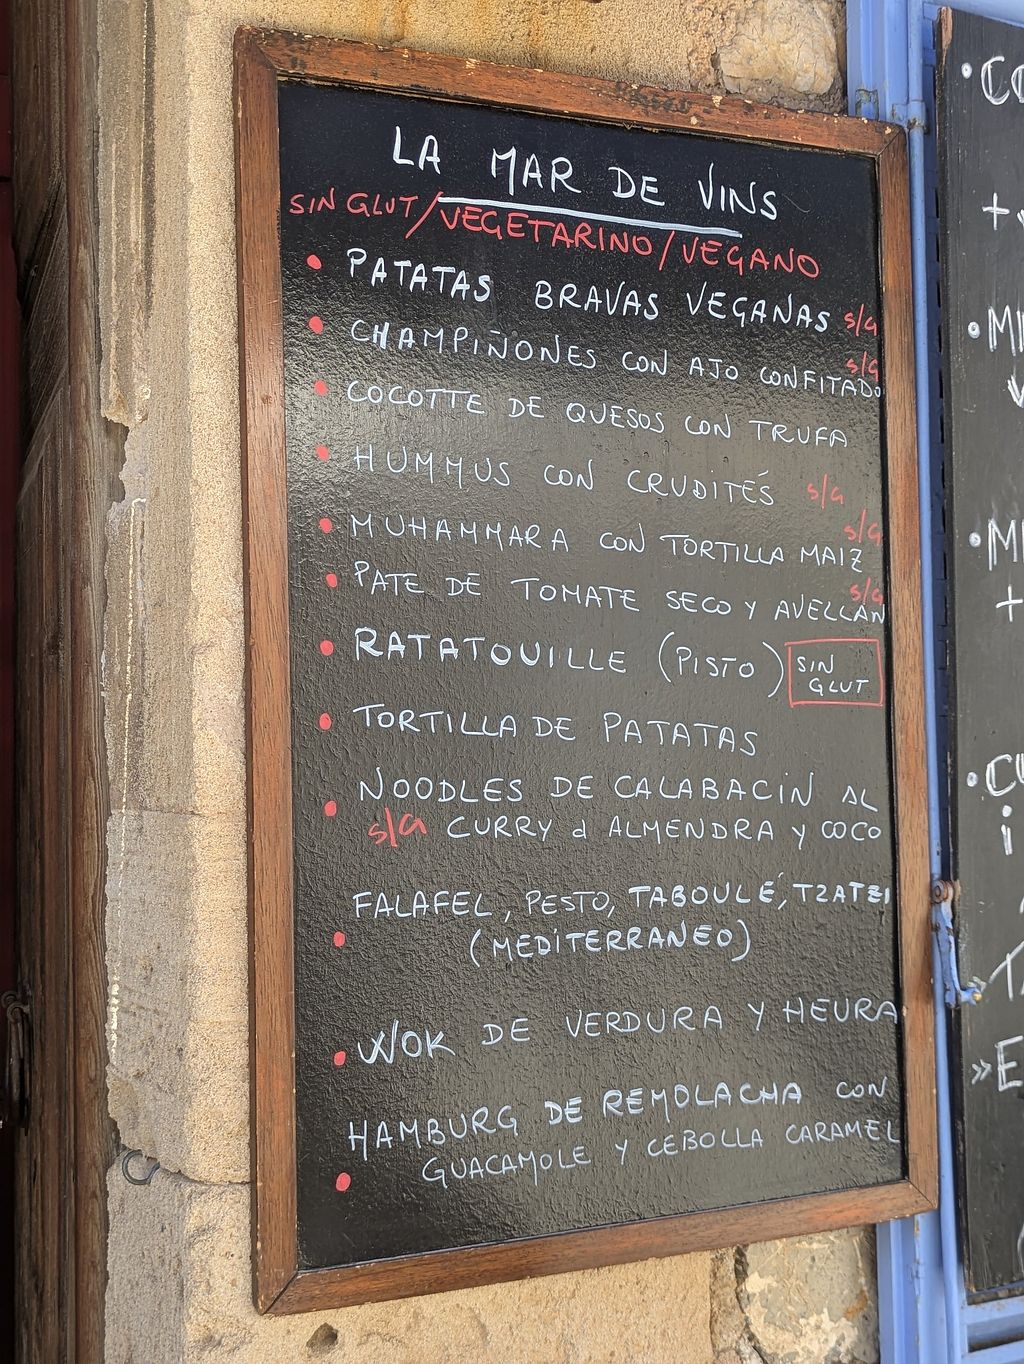 LA MAR DE VINS
SIN GLUT/VEGETARINO/VEGANO
• PATATAS BRAVAS VEGANAS s/G
• CHAMPIÑONES CON AJO CONFITADO s/G
• COCOTTE DE QUESOS CON TRUFA
• HUMMUS CON CRUDITÉS s/G
• MUHAMMARA CON TORTILLA MAIZ s/G
• PATE DE TOMATE SECO Y AVELLAN s/G
• RATATOUILLE (PISTO) SIN GLUT
• TORTILLA DE PATATAS
• NOODLES DE CALABACIN AL
s/G CURRY d ALMENDRA Y COCO
FALAFEL, PESTO, TABOULÉ, TZATZI
• (MEDITERRANEO)
• WOK DE VERDURA Y HEURA
HAMBURG DE REMOLACHA CON
• GUACAMOLE Y CEBOLLA CARAMEL